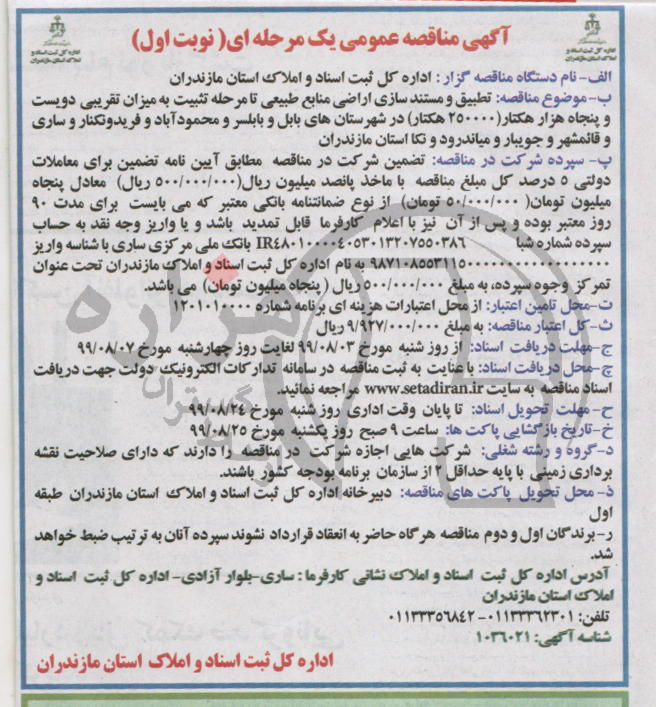 آگهی مناقصه عمومی یک مرحله ای( نوبت اول)
اداره کل ثبت اسناد و
املاک استان مازندران
اداره کل ثبت اسناد و
املاک استان مازندران
الف- نام دستگاه مناقصه گزار : اداره کل ثبت اسناد و املاک استان مازندران
ب- موضوع مناقصه: تطبیق و مستندسازی اراضی منابع طبیعی تا مرحله تثبیت به میزان تقریبی دویست
و پنجاه هزار هکتار(۲۵۰۰۰۰ هکتار) در شهرستان های بابل و بابلسر و محمودآباد و فریدونکنار و ساری
و قائمشهر و جویبار و میاندرود و نکا استان مازندران
پ- سپرده شرکت در مناقصه: تضمین شرکت در مناقصه مطابق آیین نامه تضمین برای معاملات
دولتی ۵ درصد کل مبلغ مناقصه با ماخذ پانصد میلیون ریال(۵۰۰/۰۰۰/۰۰۰ ریال) معادل پنجاه
میلیون تومان( ۵۰/۰۰۰/۰۰۰ تومان) از نوع ضمانتنامه بانکی معتبر که می بایست برای مدت ۹۰
روز معتبر بوده و پس از آن نیز با اعلام کارفرما قابل تمدید باشد و یا واریز وجه نقد به حساب
سپرده شماره شبا IR۴۸۰۱۰۰۰۰۴۰۵۳۰۱۳۲۰۷۵۵۰۳۸۶ بانک ملی مرکزی ساری با شناسه واریز
به نام اداره کل ثبت اسناد و املاک مازندران تحت عنوان
تمرکز وجوه سپرده، به مبلغ ۵۰۰/۰۰۰/۰۰۰ ریال (پنجاه میلیون تومان) می باشد.
ت- محل تامین اعتبار: از محل اعتبارات هزینه ای برنامه شماره ۱۲۰۱۰۱۰۰۰۰
ث- کل اعتبار مناقصه: به مبلغ ۹/۹۲۷/۰۰۰/۰۰۰ ریال
ج- مهلت دریافت اسناد: از روز شنبه مورخ ۹۹/۰۸/۰۳ لغایت روز چهارشنبه مورخ ۹۹/۰۸/۰۷
چ- محل دریافت اسناد: با عنایت به ثبت مناقصه در سامانه تدارکات الکترونیک دولت جهت دریافت
اسناد مناقصه به سایت www.setadiran.ir مراجعه نمائید.
ح- مهلت تحویل اسناد: تا پایان وقت اداری روز شنبه مورخ ۹۹/۰۸/۲۴
خ- تاریخ بازگشایی پاکت ها: ساعت ۹ صبح روز یکشنبه مورخ ۹۹/۰۸/۲۵
د- گروه و رشته شغلی: شرکت هایی اجازه شرکت در مناقصه را دارند که دارای صلاحیت نقشه
برداری زمینی با پایه حداقل ۲ از سازمان برنامه بودجه کشور باشند.
ذ- محل تحویل پاکت های مناقصه: دبیرخانه اداره کل ثبت اسناد و املاک استان مازندران طبقه
اول
ر- برندگان اول و دوم مناقصه هرگاه حاضر به انعقاد قرارداد نشوند سپرده آنان به ترتیب ضبط خواهد
شد.
آدرس اداره کل ثبت اسناد و املاک نشانی کارفرما : ساری-بلوار آزادی- اداره کل ثبت اسناد و
املاک استان مازندران
تلفن: ۰۱۱۳۳۳۶۲۳۰۱- ۰۱۱۳۳۳۵۶۸۴۲
شناسه آگهی: ۱۰۳۶۰۲۱
اداره کل ثبت اسناد و املاک استان مازندران